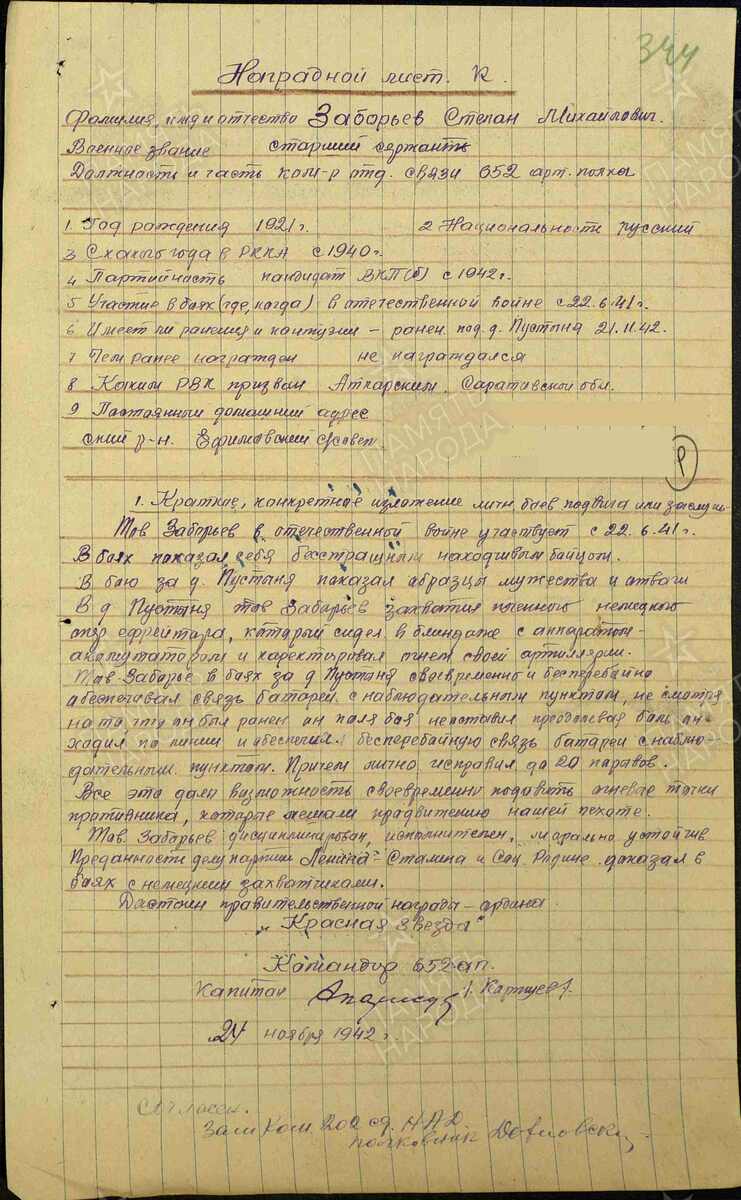 344
Наградной лист. К.
Фамилия, имя и отчество Заборьев Степан Михайлович.
Военное звание старший сержантъ
Должность и часть ком-р отд. связи 652 арт. полка
1. Год рождения 1921 г. 2 Национальность русский
3 С какого года в РККА с 1940 г.
4 Партийность кандидат ВКП(б) с 1942 г.
5 Участие в боях (где, когда) в отечественной войне с 22.6.41 г.
6 Имеет ли ранения и контузии – ранен под д. Пустыня 21.11.42.
7 Чем ранее награжден не награждался
8 Каким РВК призван Аткарским, Саратовской обл.
9 Постоянный домашний адрес
ский р-н. Ефимовский с/совет.
1. Краткое, конкретное изложение личн. боев. подвига или заслуг.
Тов Заборьев в отечественной войне участвует с 22.6.41 г.
В боях показал себя бесстрашным находчивым бойцом.
В бою за д. Пустыня показал образцы мужества и отваги
В д Пустыня тов Заборьев захватил пленного немецкого
обер ефрейтора, который сидел в блиндаже с аппаратом-
и корректировал огнем своей артиллерии.
Тов. Заборье в боях за д Пустыня своевременно и бесперебойно
обеспечивал связь батареи с наблюдательным пунктом, не смотря
на то, что он был ранен он поля боя не оставил преодолевая боль он
ходил по линии и обеспечил бесперебойную связь батареи с наблю-
дательным пунктом. Причем лично исправил до 20 порывов.
Все это дало возможность своевременно подавить огневые точки
противника, которые мешали продвижению нашей пехоте.
Тов. Заборьев дисциплинирован, исполнителен, морально устойчив
Преданность делу партии Ленина-Сталина и Соц. Родине доказал в
боях с немецкими захватчиками.
Достоин правительственной награды – ордена
„Красная звезда"
Командир 652 ап.
Капитан /. Картуев /.
24 ноября 1942 г.
Согласен.
Зам Ком. 200 сд. НАД
полковник
ПАМЯТЬ НАРОДА